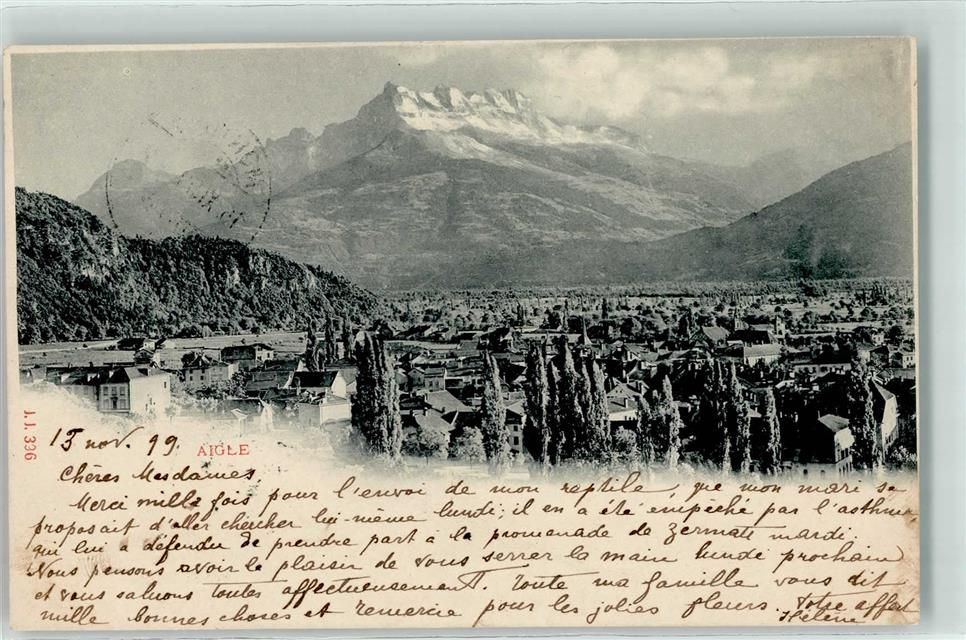 13 nov. 99.
AIGLE
J.J. 336
Chères Mesdames,
Merci mille fois pour l'envoi de mon reptile, que mon mari se
proposait d'aller chercher lui-même lundi; il en a été empêché par l'asthme,
qui lui a défendu de prendre part à la promenade de Zermatt mardi.
Nous pensons avoir le plaisir de vous serrer la main lundi prochain
et vous saluons toutes affectueusement. Toute ma famille vous dit
mille bonnes choses et remercie pour les jolies fleurs. Votre affect
Hélène